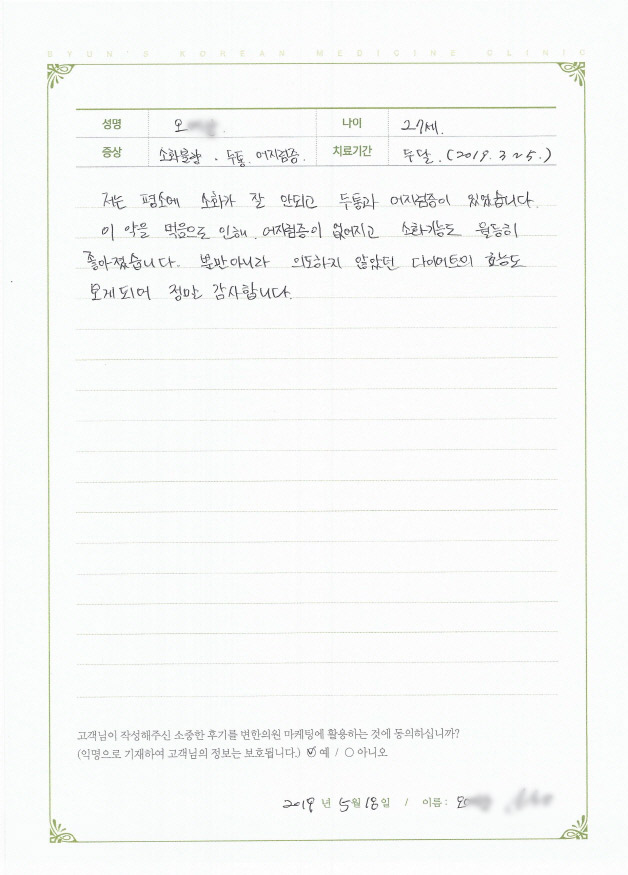 BYUN'S KOREAN MEDICINE CLINIC
성명 오 나이 27세.
증상 소화불량 · 두통. 어지럼증. 치료기간 두달. (2019. 3 ~ 5.)
저는 평소에 소화가 잘 안되고 두통과 어지럼증이 있었습니다.
이 약을 먹음으로 인해. 어지럼증이 없어지고 소화기능도 월등히
좋아졌습니다. 뿐만아니라 의도하지 않았던 다이어트의 효능도
보게되어 정말 감사합니다.
고객님이 작성해주신 소중한 후기를 변한의원 마케팅에 활용하는 것에 동의하십니까?
(익명으로 기재하여 고객님의 정보는 보호됩니다.) 예 / 아니오
2019 년 5월 18일 / 이름 : 오